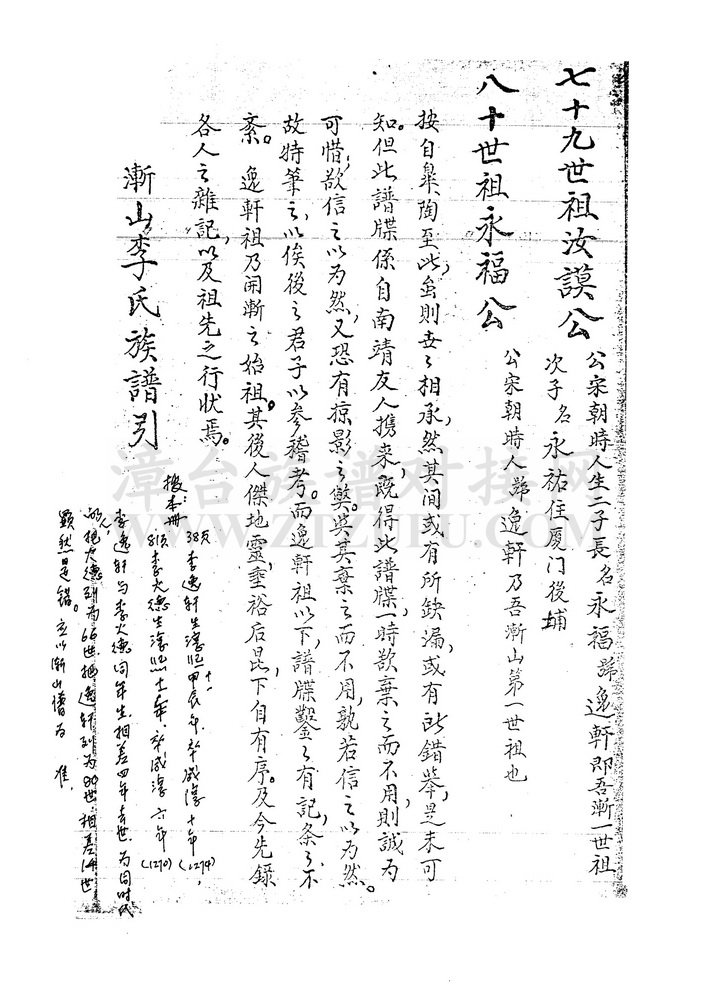 七十九世祖汝謨公
公宋朝時人生二子長名永福歸逸軒即吾漸一世祖
次子名永祐住厦门後埔
八十世祖永福公
公宋朝時人歸逸軒乃吾漸山第一世祖也
按自臯陶至此,虽則世々相承,然其间或有所缺漏,或有此錯举,是未可
知。但此譜牒係自南靖友人携来,既得此譜牒,一時欲棄之而不用,則誠为
可惜,欲信之以为然,又恐有掠影之獘。与其棄之而不用,孰若信之以为然。
故特筆之,以俟後之君子以参稽考。而逸軒祖以下,譜牒鑿々有記,条々不
紊。逸軒祖乃開漸之始祖。其後人傑地靈,垂裕后昆,下自有序。及今先錄
各人之雜記,以及祖先之行状焉。
漸山李氏族譜引
按:本册
38页李逸轩生淳熙十一甲辰年,卒咸淳十年(1274),
81页李大德生淳熙十一年,卒咸淳六年(1270)
李逸轩与李大德同年生,相差四年去世,为同时代
人,把大德列为66世,把逸轩列为80世,相差14世
顯然是錯。应以漸山谱为准.
漳台族谱对接网
www.ZTZUPU.COM